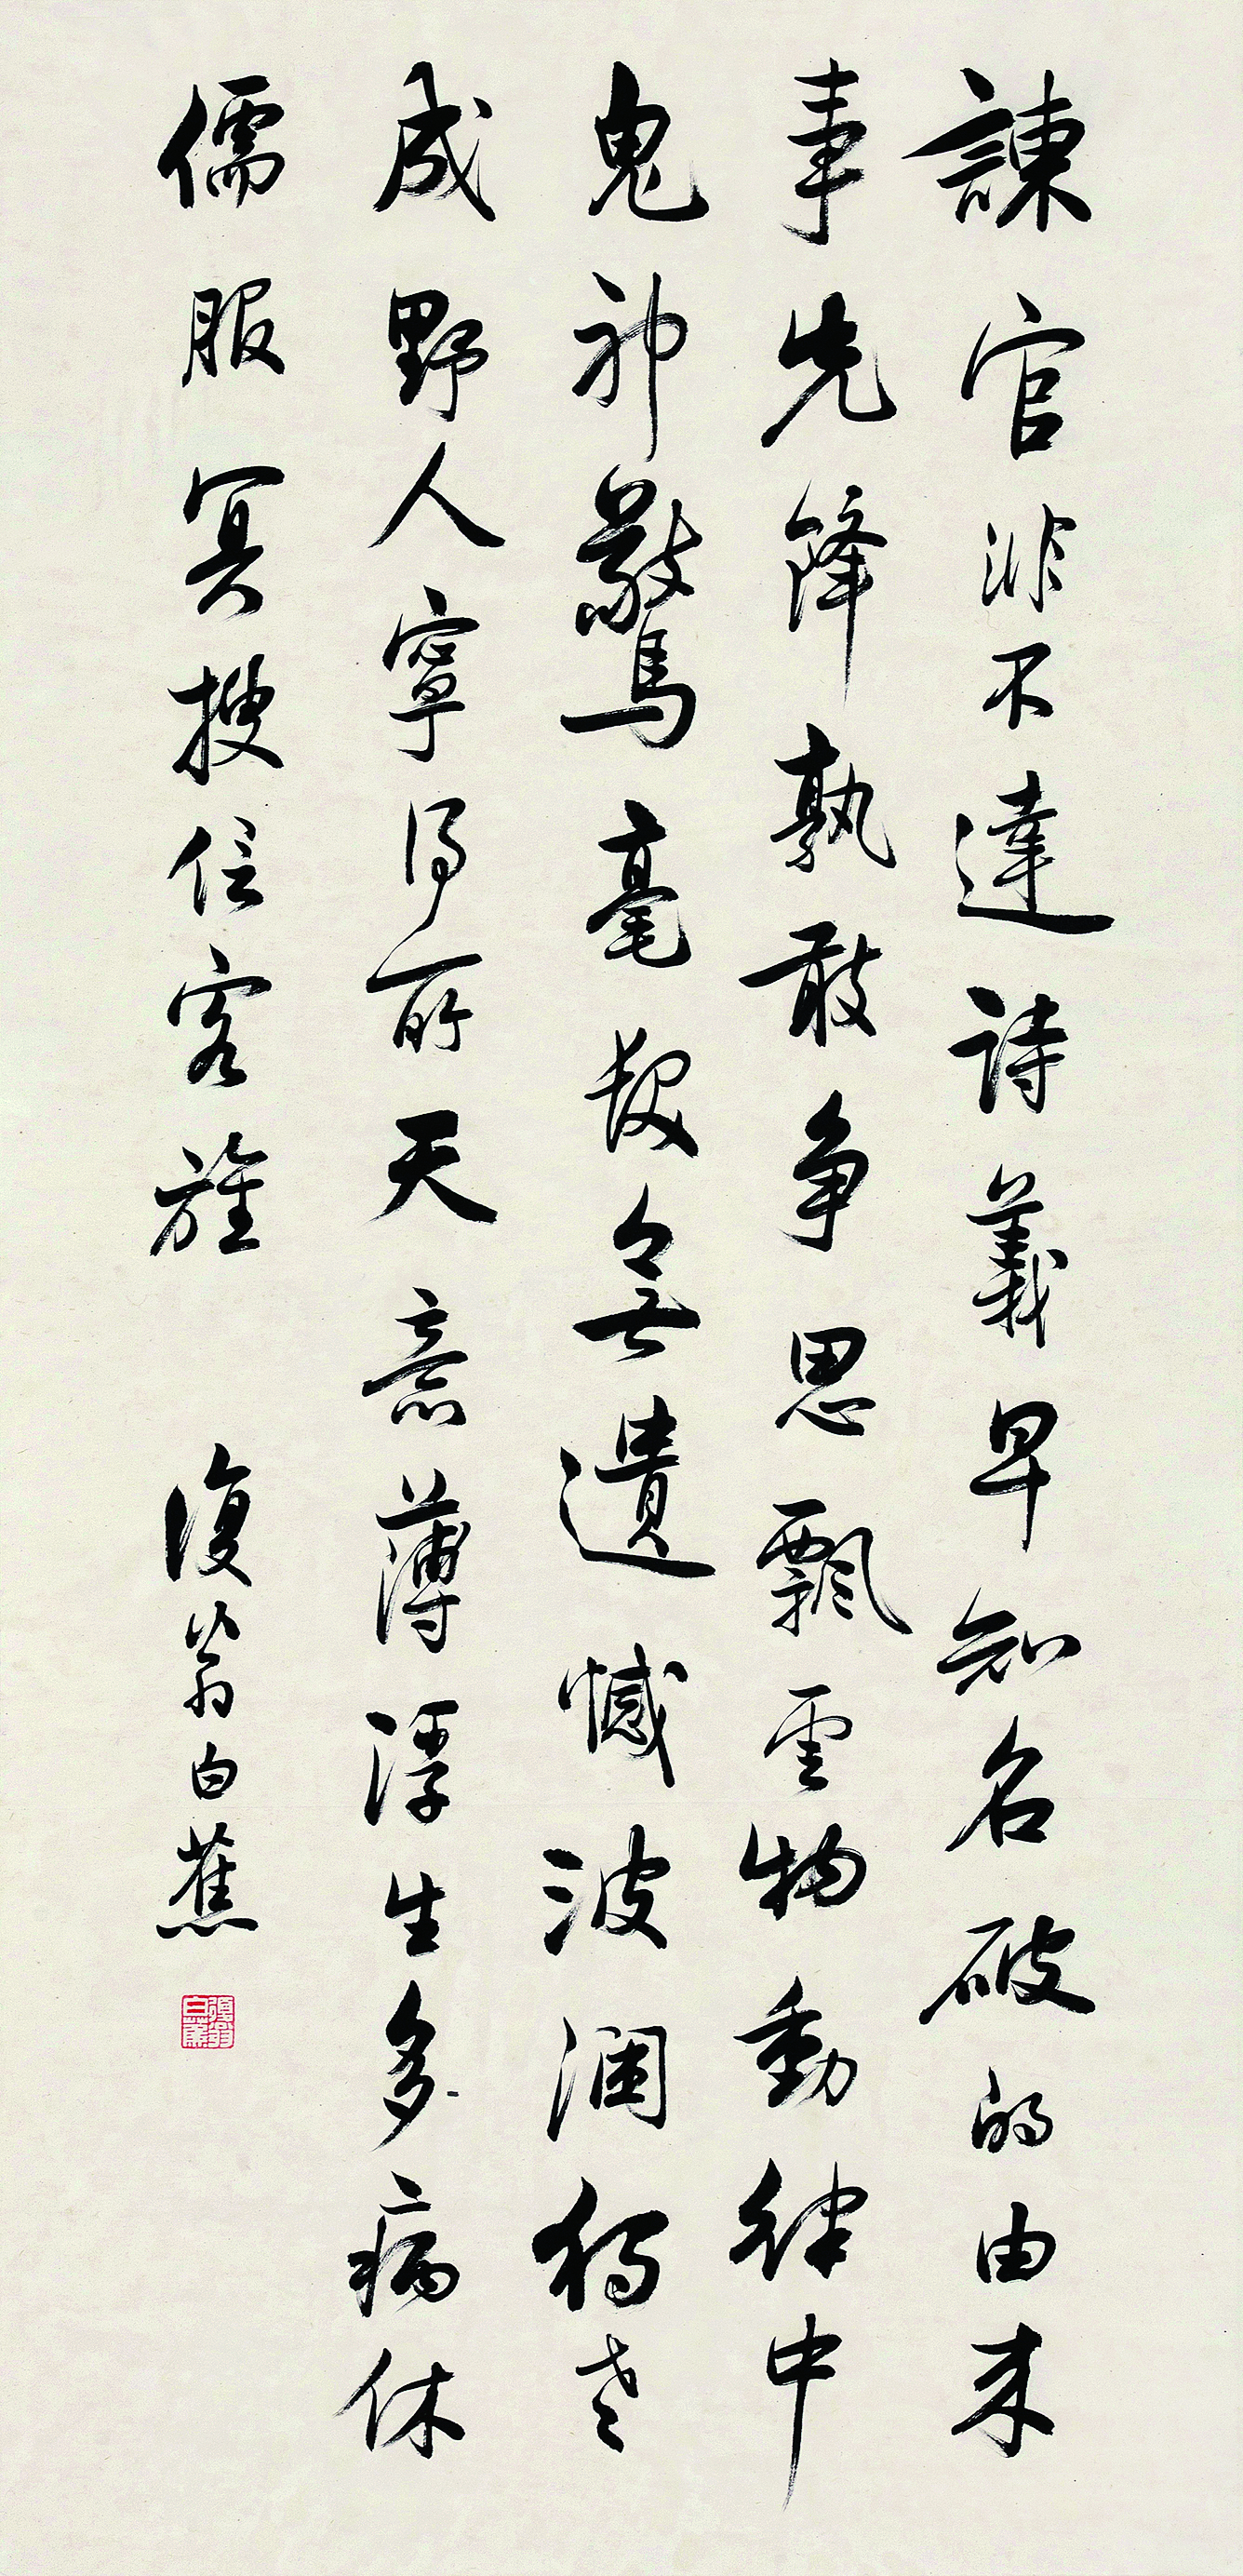 諫官非不達詩義早知名破的由来
事先鋒孰敢争思飄雲物動律中
鬼神驚毫髮無遺憾波瀾獨老
成野人寧得所天意薄浮生多病休
儒服冥搜信客旌
復翁白蕉
復翁白蕉